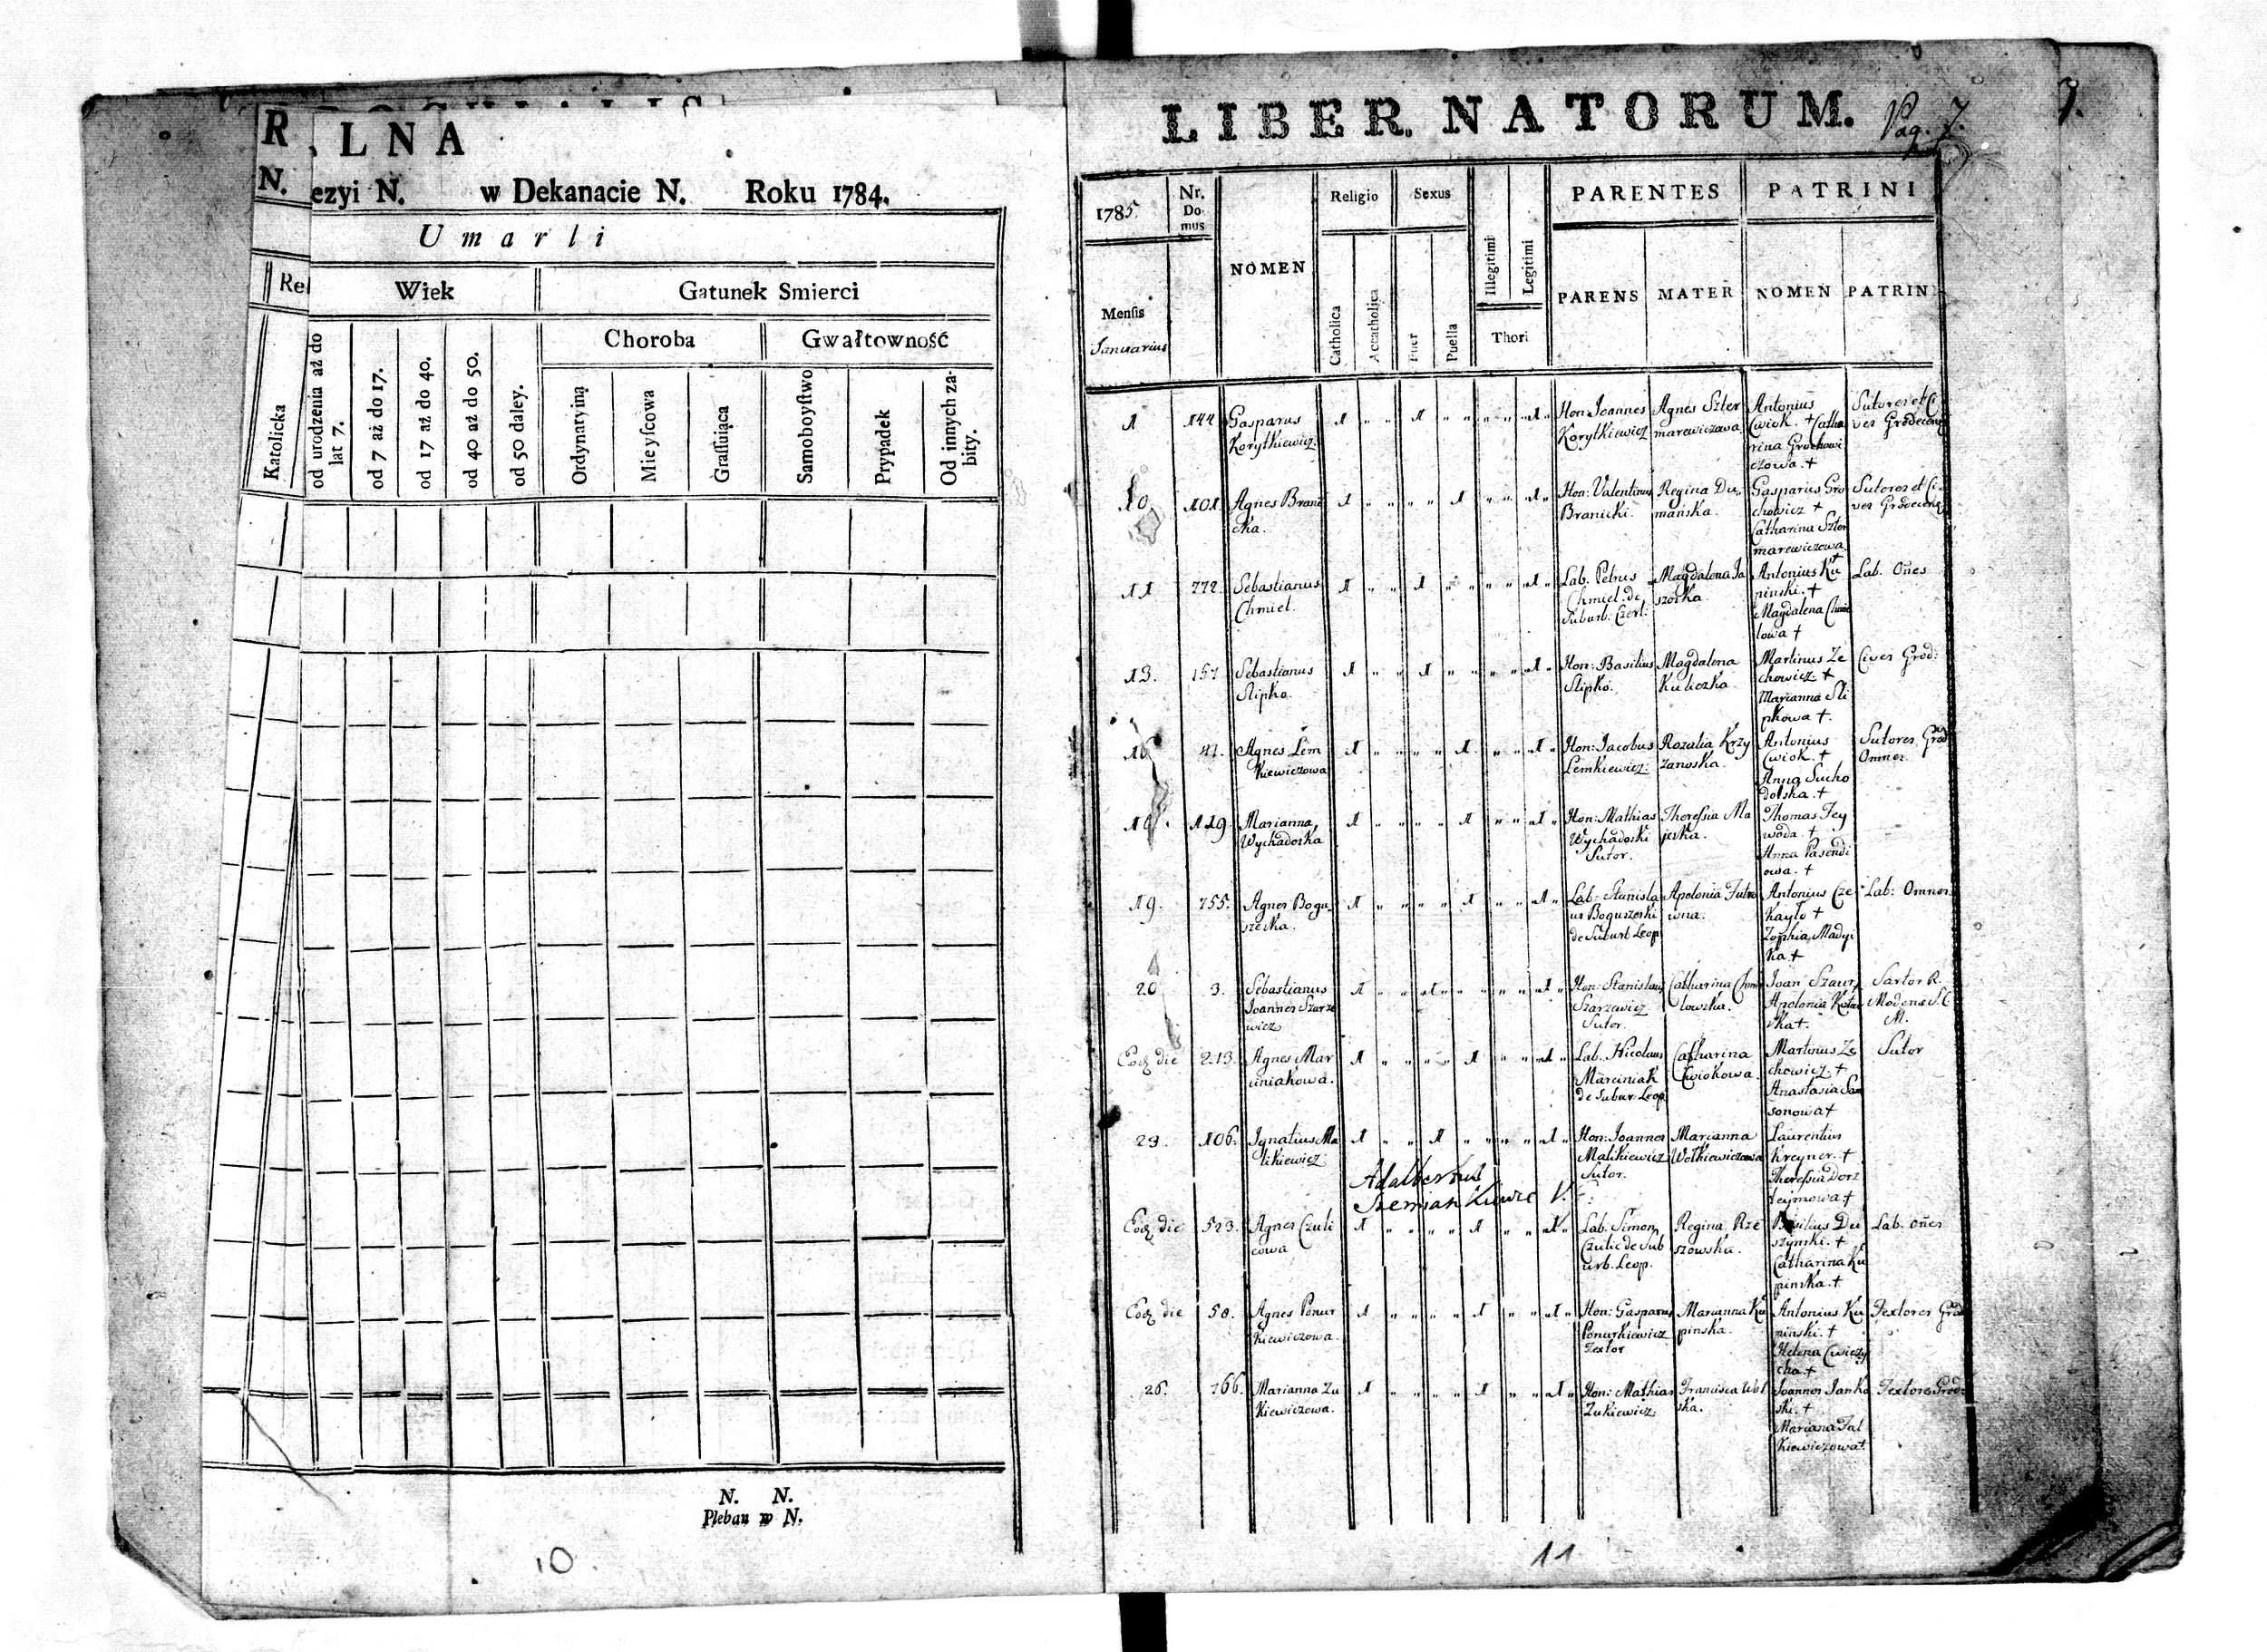 R . L N A
N. ezyi N. w Dekanacie N. Roku 1784.
Umarli
Rel Wiek Gatunek Smierci
Choroba Gwałtowność
Katolicka
od urodzenia aż do lat 7.
od 7 aż do 17.
od 17 aż do 40.
od 40 aż do 50.
od 50 daley.
Ordynaryiną
Mieyſcowa
Graſſuiąca
Samoboyſtwo
Prypadek
Od innych zabity.
N. N.
Pleban w N.
10.
LIBER NATORUM. Pag. 7.
1785.
Nr. Domus
NOMEN
Religio
Sexus
Illegitimi
Legitimi
PARENTES
PATRINI
Menſis
Januarius
Catholica
Accatholica
Puer
Puella
Thori
PARENS
MATER
NOMEN
PATRINI
1 144 Gasparus Korytkiewicz. 1 1 1 Hon: Joannes Korytkiewicz Agnes Szter marewiczowa. Antonius Cwiok. + Catha rina Grochowi czowa. + Sutores et Ci ves
10 101. Agnes Brani cka. 1 1 1 Hon: Valentinus Branicki. Regina Du mańska. Gasparus Gro chowicz + Catharina Szter marewiczowa + Sutores et Ci ves
11 772. Sebastianus Chmiel. 1 1 1 Lab. Petrus Chmiel de Suburb. Czerl: Magdalena Ja szorka. Antonius Ku pinski. + Magdalena Chmie lowa + Lab. Oñes
13. 157 Sebastianus Slipko. 1 1 1 Hon: Basilius Slipko. Magdalena Kuliczka. Martinus Ze chowicz + Marianna Sli pkowa +. Cives Grod:
16 41. Agnes Lem kiewiczowa 1 1 1 Hon: Jacobus Lemkiewicz: Rozalia Krzy zanoska. Antonius Cwiok. + Anna Sucho dolska. + Sutores Grod Omnes.
119. Marianna Wychadoska 1 1 1 Hon: Mathias Wychadoski Sutor. Theresia Ma jerka. Thomas Fey woda. + Anna Pasendi owa. +
19. 755. Agnes Bogu szeska. 1 1 1 Lab: Stanisla us Boguszeski de Suburb Leop Apolonia Antonius Cze kaylo + Zophia Madyi ka + Lab: Omnes.
20 3. Sebastianus Joannes Szarze wicz 1 1 1 Hon: Stanislaus Szarzewicz Sutor. Catharina Joan Apolonia Sartor R.
Eod die 213. Agnes Mar ciniakowa. 1 1 1 Lab. Nicolaus Marciniak de Subur: Leop. Catharina Cwiokowa Martinus Ze chowicz + Anastasia Sam sonowa + Sutor
23. 106. Ignatius Ma likiewicz 1 1 1 Hon: Joannes Malikiewicz Sutor. Marianna Wołkiewiczowa Laurentius Kreyner. + Theresia Dorz teymowa +
Adalbertus
Eod die 523. Agnes Czuli cowa 1 1 1 Lab. Simon Czulic de Sub urb. Leop. Regina Rze szowska. Basilius Du szynski. + Catharina Ku pinska. + Lab. oñes
Eod die 50. Agnes Ponur kiewiczowa. 1 1 1 Hon: Gasparus Ponurkiewicz Textor Marianna Ku pinska. Antonius Ku pinski. + Helena Cwiczy cha + Textores Grod
26. 166. Marianna Zu kiewiczowa. 1 1 1 Hon: Mathias Zukiewicz Francisca Wol ska. Joannes Janko ski. + Mariana Fal kiewiczowa +. Textores Grod:
11